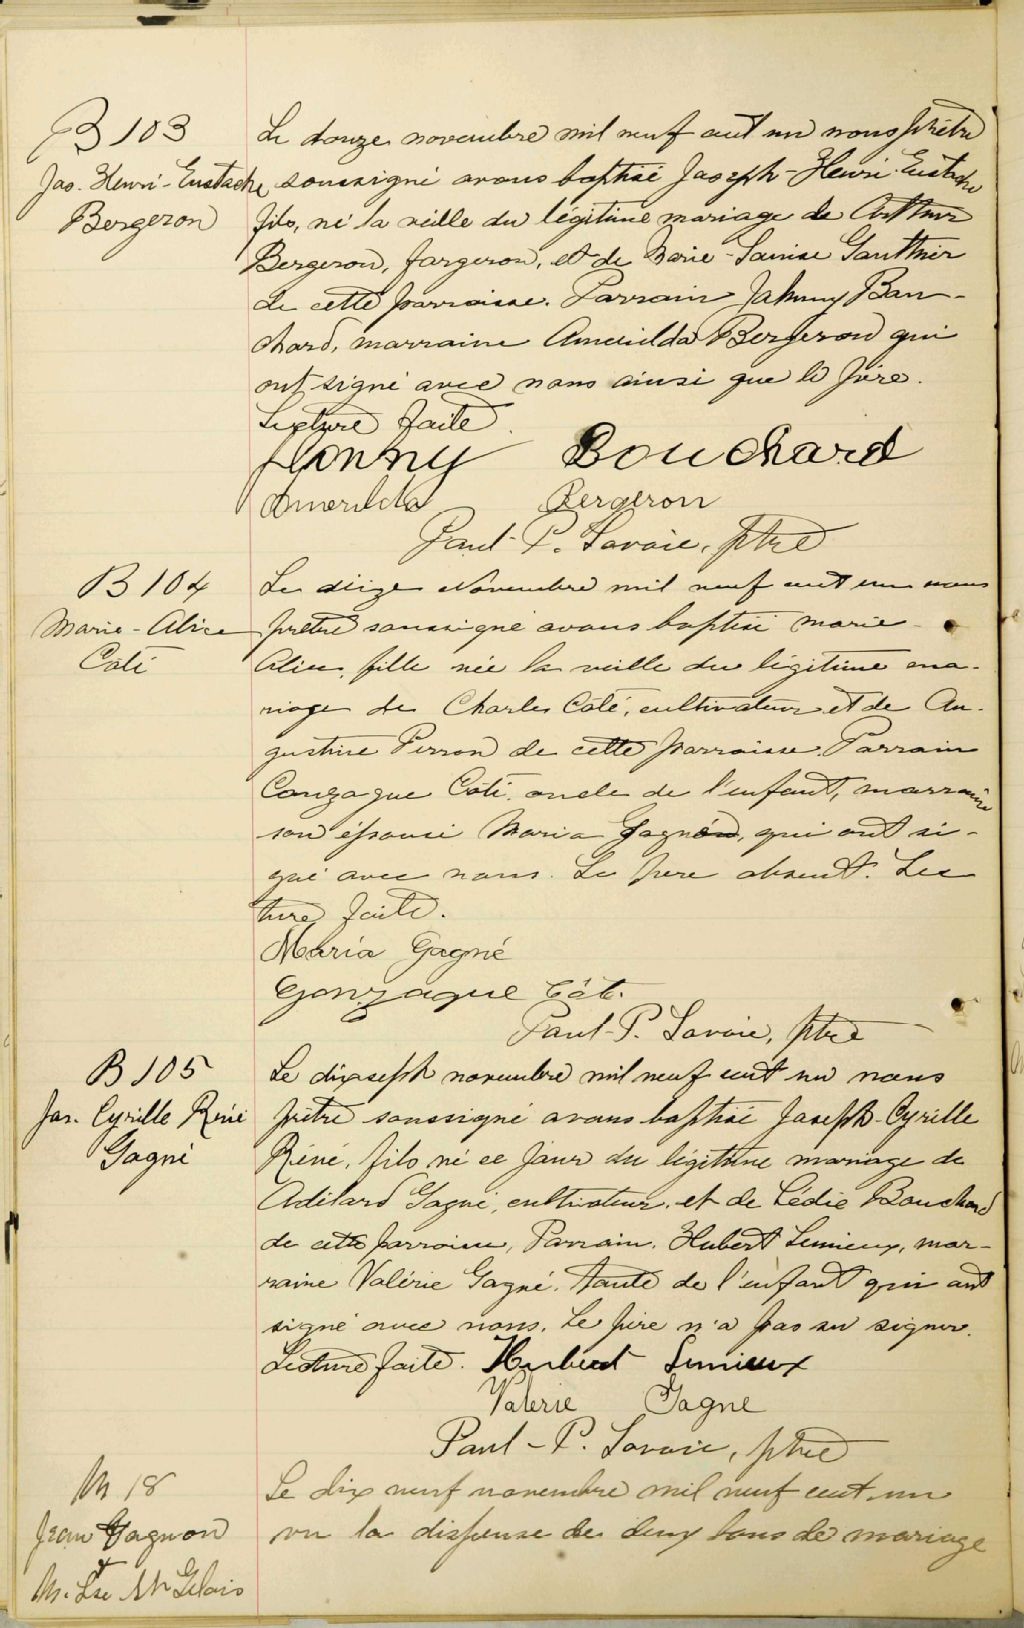 B 103
Jos. Henri-Eustache
Bergeron
Le douze novembre mil neuf cent un nous prêtre
soussigné avons baptisé Joseph-Henri-Eustache
fils, né la veille du légitime mariage de Arthur
Bergeron, forgeron, et de Marie-Louise Gauthier
de cette parroisse. Parrain Johnny Bou-
chard, marraine Amerilda Bergeron qui
ont signé avec nous ainsi que le père.
Lecture faite.
Jonny Bouchard
Amerilda Bergeron
Paul-P. Savoie, ptre
B 104
Marie-Alice
Coté
Le Novembre mil neuf cent un nous
prêtre soussigné avons baptisé Marie
Alice, fille née la veille du légitime ma-
riage de Charles Côté, cultivateur et de Au-
gustine Perron de cette parroisse. Parrain
Gonzague Côté, oncle de l'enfant, marraine
son épouse Maria Gagné, qui ont si-
gné avec nous. Le père absent. Lec
ture faite.
Maria Gagné
Gonzague Côté
Paul-P. Savoie, ptre
B 105
Jos. Cyrille Réné
Gagné
Le dixseph novembre mil neuf cent un nous
prêtre soussigné avons baptisé Joseph-Cyrille
Réné, fils né ce jour du légitime mariage de
Adélard Gagné, cultivateur, et de Lédie Bouchard
de cette parroisse, Parrain, Hubert Lemieux, mar-
raine Valérie Gagné, tante de l'enfant qui ont
signé avec nous. Le père n'a pas su signer.
Lecture faite. Hubert Lemieux
Valerie Gagne
Paul-P. Savoie, ptre
M 18
Jean Gagnon
+
M. Lse St Gelais
Le dix neuf novembre mil neuf cent un
vu la dispense de deux bans de mariage